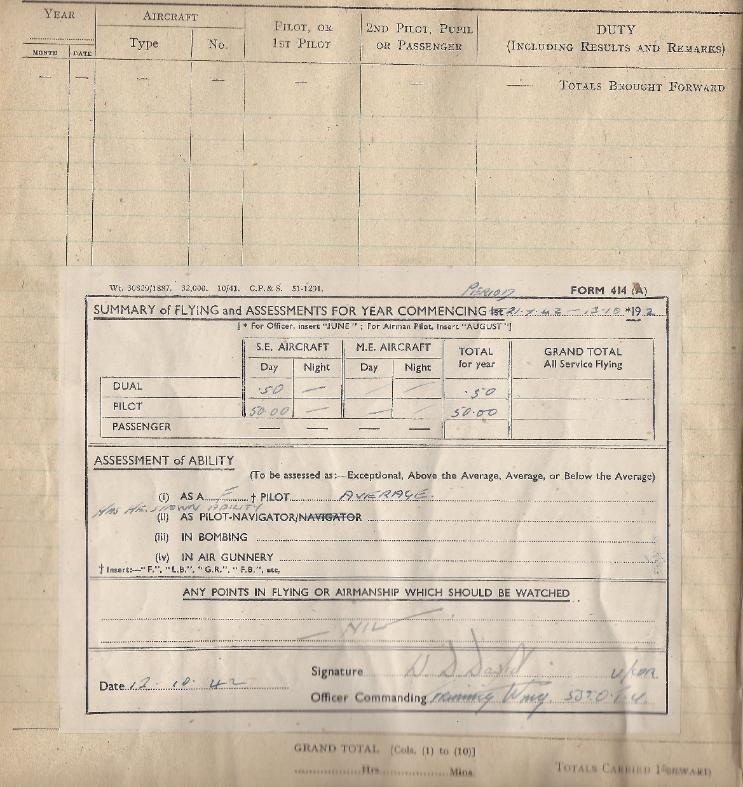 YEAR AIRCRAFT PILOT, OR 1ST PILOT 2ND PILOT, PUPIL OR PASSENGER DUTY (INCLUDING RESULTS AND REMARKS)
MONTH DATE Type No.
— — — — — — — TOTALS BROUGHT FORWARD
Wt. 30829/1887. 32,000. 10/41. C.P.& S. 51-1291. PERIOD FORM 414 (A)
SUMMARY of FLYING and ASSESSMENTS FOR YEAR COMMENCING 1st *19
[* For Officer, insert "JUNE"; For Airman Pilot, insert "AUGUST"]
S.E. AIRCRAFT M.E. AIRCRAFT TOTAL for year GRAND TOTAL All Service Flying
Day Night Day Night
DUAL .50 — — — .50
PILOT 50.00 — — — 50.00
PASSENGER — — — — —
ASSESSMENT of ABILITY
(To be assessed as:—Exceptional, Above the Average, Average, or Below the Average)
(i) AS A F † PILOT AVERAGE.
HAS HE SHOWN ABILITY
(ii) AS PILOT-NAVIGATOR/NAVIGATOR
(iii) IN BOMBING
(iv) IN AIR GUNNERY
† Insert:—"F.", "L.B.", "G.R.", "F.B.", etc.
ANY POINTS IN FLYING OR AIRMANSHIP WHICH SHOULD BE WATCHED
— NIL —
Signature
Date 12. 10. 42
Officer Commanding Training Wing. 53 O.T.U.
GRAND TOTAL [Cols. (1) to (10)]
Hrs. Mins.
TOTALS CARRIED FORWARD